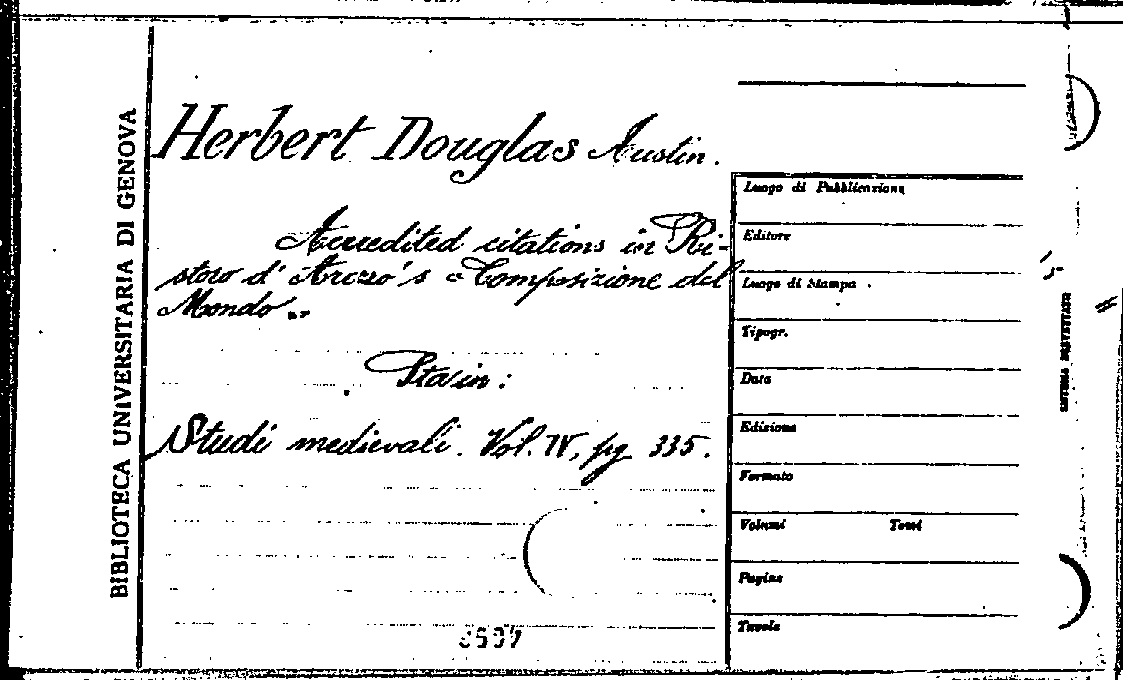 BIBLIOTECA UNIVERSITARIA DI GENOVA
Herbert Douglas Austin.
Accredited citations in Ri-
storo d'Arezzo's "Composizione del
Mondo".
Sta in:
Studi medievali. Vol. IV, pg 335.
Luogo di Pubblicazione
Editore
Luogo di Stampa
Tipogr.
Data
Edizione
Formato
Volumi Tomi
Pagine
Tavole